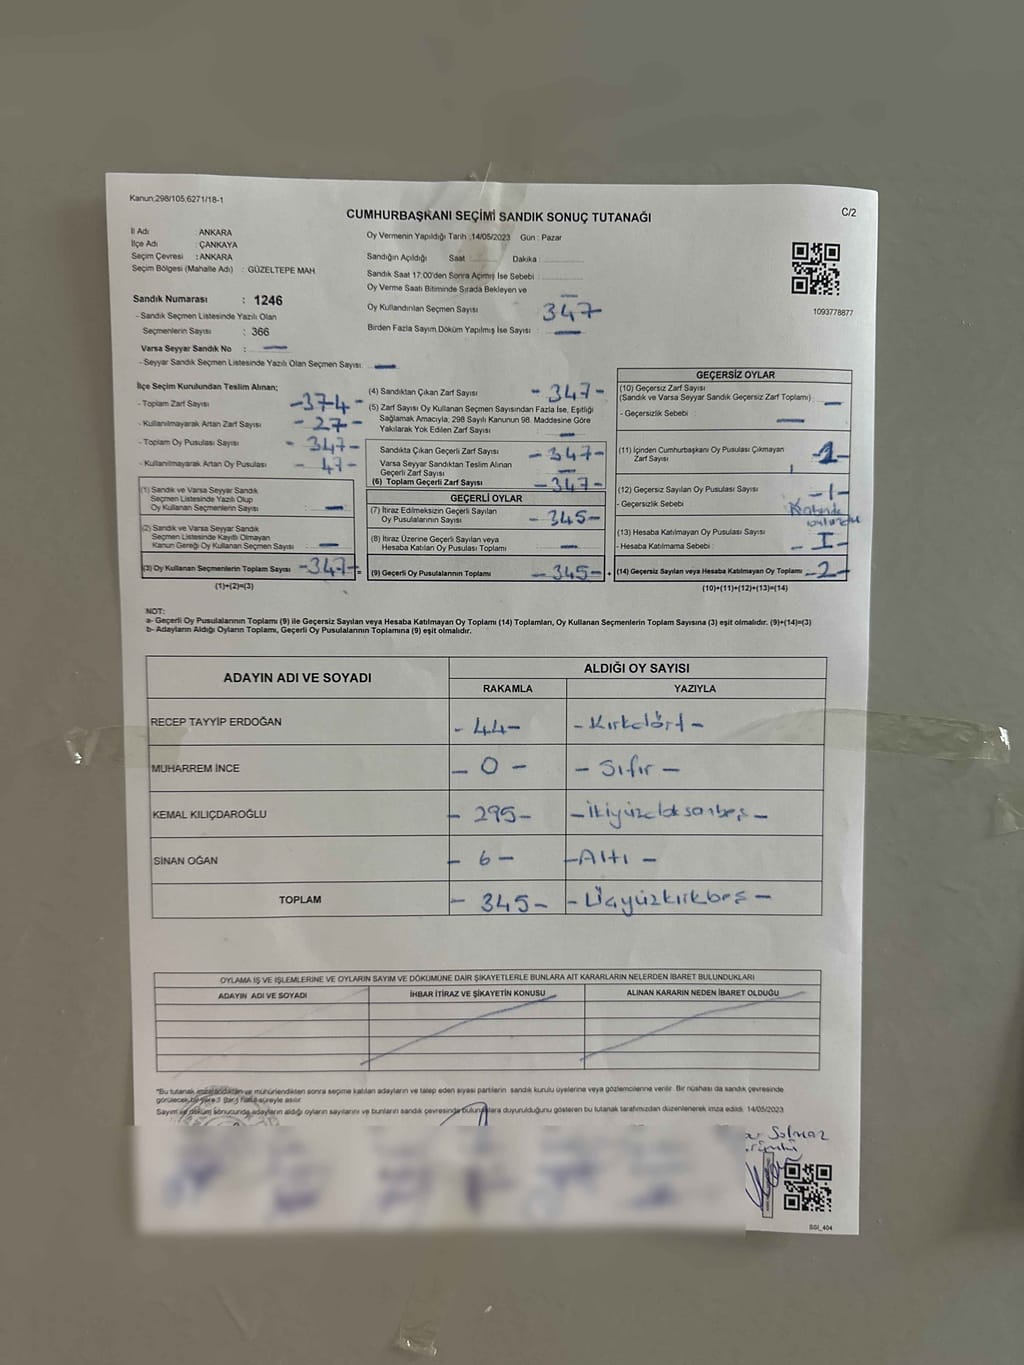 Kanun;298/105,6271/18-1
C/2
CUMHURBAŞKANI SEÇİMİ SANDIK SONUÇ TUTANAĞI
İl Adı ANKARA
İlçe Adı : ÇANKAYA
Seçim Çevresi : ANKARA
Seçim Bölgesi (Mahalle Adı) : GÜZELTEPE MAH
Sandık Numarası : 1246
- Sandık Seçmen Listesinde Yazılı Olan
Seçmenlerin Sayısı : 366
Varsa Seyyar Sandık No : —
- Seyyar Sandık Seçmen Listesinde Yazılı Olan Seçmen Sayısı: —
Oy Vermenin Yapıldığı Tarih :14/05/2023 Gün : Pazar
Sandığın Açıldığı Saat Dakika :
Sandık Saat 17:00'den Sonra Açılmış İse Sebebi :
Oy Verme Saati Bitiminde Sırada Bekleyen ve
Oy Kullandırılan Seçmen Sayısı 347
Birden Fazla Sayım Döküm Yapılmış İse Sayısı : —
1093778877
İlçe Seçim Kurulundan Teslim Alınan;
- Toplam Zarf Sayısı -374-
- Kullanılmayarak Artan Zarf Sayısı -27-
- Toplam Oy Pusulası Sayısı - 347-
- Kullanılmayarak Artan Oy Pusulası - 47-
(1) Sandık ve Varsa Seyyar Sandık
Seçmen Listesinde Yazılı Olup
Oy Kullanan Seçmenlerin Sayısı —
(2) Sandık ve Varsa Seyyar Sandık
Seçmen Listesinde Kayıtlı Olmayan
Kanun Gereği Oy Kullanan Seçmen Sayısı —
(3) Oy Kullanan Seçmenlerin Toplam Sayısı -347- =
(1)+(2)=(3)
(4) Sandıktan Çıkan Zarf Sayısı - 347-
(5) Zarf Sayısı Oy Kullanan Seçmen Sayısından Fazla İse, Eşitliği
Sağlamak Amacıyla, 298 Sayılı Kanunun 98. Maddesine Göre
Yakılarak Yok Edilen Zarf Sayısı —
Sandıkta Çıkan Geçerli Zarf Sayısı -347-
Varsa Seyyar Sandıktan Teslim Alınan
Geçerli Zarf Sayısı —
(6) Toplam Geçerli Zarf Sayısı -347-
GEÇERLİ OYLAR
(7) İtiraz Edilmeksizin Geçerli Sayılan
Oy Pusulalarının Sayısı - 345-
(8) İtiraz Üzerine Geçerli Sayılan veya
Hesaba Katılan Oy Pusulası Toplamı —
(9) Geçerli Oy Pusulalarının Toplamı - 345- +
GEÇERSİZ OYLAR
(10) Geçersiz Zarf Sayısı
(Sandık ve Varsa Seyyar Sandık Geçersiz Zarf Toplamı) : —
- Geçersizlik Sebebi : —
(11) İçinden Cumhurbaşkanı Oy Pusulası Çıkmayan
Zarf Sayısı
(12) Geçersiz Sayılan Oy Pusulası Sayısı -1-
- Geçersizlik Sebebi
(13) Hesaba Katılmayan Oy Pusulası Sayısı
- Hesaba Katılmama Sebebi : - I -
(14) Geçersiz Sayılan veya Hesaba Katılmayan Oy Toplamı -2-
(10)+(11)+(12)+(13)=(14)
NOT:
a- Geçerli Oy Pusulalarının Toplamı (9) ile Geçersiz Sayılan veya Hesaba Katılmayan Oy Toplamı (14) Toplamları, Oy Kullanan Seçmenlerin Toplam Sayısına (3) eşit olmalıdır. (9)+(14)=(3)
b- Adayların Aldığı Oyların Toplamı, Geçerli Oy Pusulalarının Toplamına (9) eşit olmalıdır.
ADAYIN ADI VE SOYADI ALDIĞI OY SAYISI
RAKAMLA YAZIYLA
RECEP TAYYİP ERDOĞAN - 44- - Kırkdört -
MUHARREM İNCE - 0 - - Sıfır -
KEMAL KILIÇDAROĞLU - 295- - İkiyüzdoksanbeş -
SİNAN OĞAN - 6 - - Altı -
TOPLAM - 345- - Üçyüzkırkbeş -
OYLAMA İŞ VE İŞLEMLERİNE VE OYLARIN SAYIM VE DÖKÜMÜNE DAİR ŞİKAYETLERLE BUNLARA AİT KARARLARIN NELERDEN İBARET BULUNDUKLARI
ADAYIN ADI VE SOYADI İHBAR İTİRAZ VE ŞİKAYETİN KONUSU ALINAN KARARIN NEDEN İBARET OLDUĞU
*Bu tutanak imzalandıktan ve mühürlendikten sonra seçime katılan adayların ve talep eden siyasi partilerin sandık kurulu üyelerine veya gözlemcilerine verilir. Bir nüshası da sandık çevresinde
görülecek bir yere süreyle asılır.
Sayım ve döküm sonucunda adayların aldığı oyların sayılarını ve bunların sandık çevresinde bulunanlara duyurulduğunu gösteren bu tutanak tarafımızdan düzenlenerek imza edildi. 14/05/2023
Solmaz
SGI_404